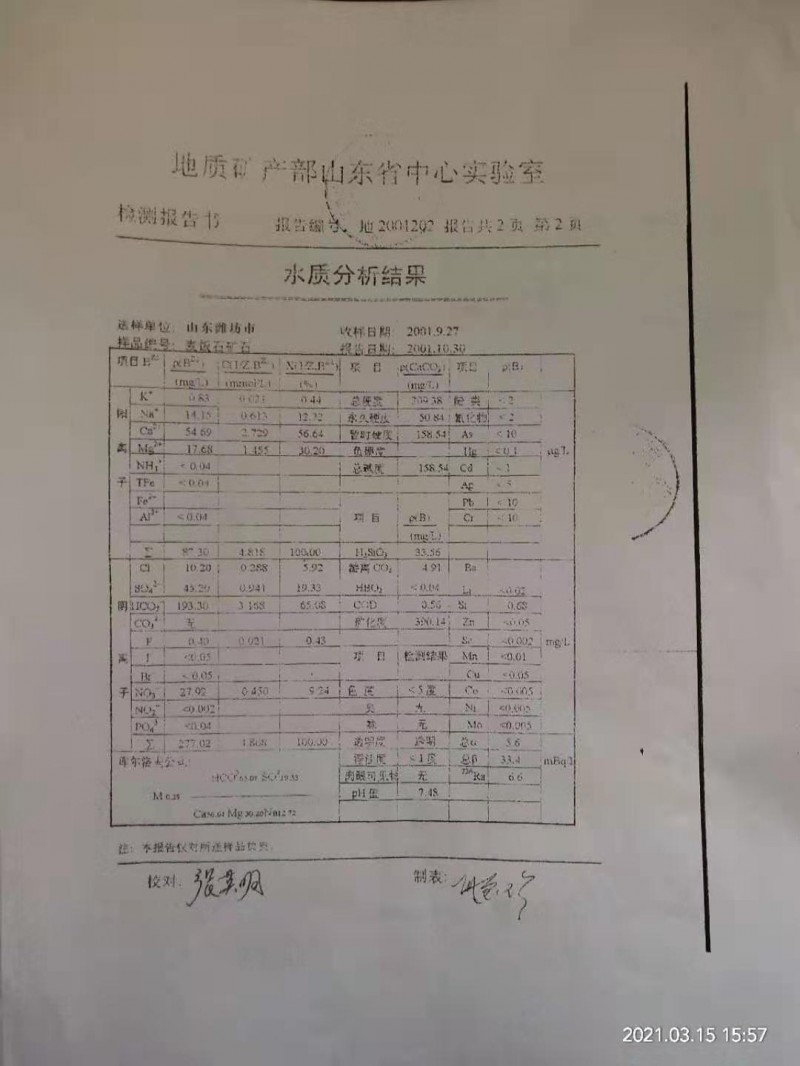 地质矿产部山东省中心实验室
检测报告书 报告编号 地2001292 报告共2页 第2页
水质分析结果
送样单位: 山东潍坊市 收样日期: 2001.9.27
样品编号: 麦饭石矿石 报告日期: 2001.10.30
项目 项 目 ρ(CaCO₃) 项目 ρ(B)
(mg/L) (mmol/L) (%) (mg/L)
K⁺ 0.83 0.021 0.44 总硬度 209.38 < 2
Na⁺ 14.15 0.615 12.72 永久硬度 50.84 氰化物 < 2
Ca²⁺ 54.69 2.729 56.64 暂时硬度 158.54 As < 10
Mg²⁺ 17.68 1.455 30.20 负硬度 Hg < 0.1 μg/L
NH₄⁺ < 0.04 总碱度 158.54 Cd < 1
子 TFe < 0.04 Ag < 5
Fe²⁺ Pb < 10
Al³⁺ < 0.04 项 目 ρ(B) Cr < 10
(mg/L)
Σ 87.30 4.818 100.00 H₂SiO₃ 33.56
Cl 10.20 0.288 5.92 游离 CO₂ 4.91 Ba
SO₄²⁻ 45.20 0.941 19.33 HBO₂ < 0.04 Li <0.02
阴 HCO₃⁻ 193.30 3.168 65.08 COD 0.56 Sr 0.68
CO₃²⁻ 无 矿化度 390.14 Zn <0.05
F 0.40 0.021 0.43 Se <0.002 mg/L
离 I <0.05 项 目 检测结果 Mn <0.01
Br⁻ <0.05 Cu <0.05
子 NO₃⁻ 27.92 0.450 9.24 色 度 <5度 Co <0.005
NO₂⁻ <0.002 臭 无 Ni <0.005
PO₄³⁻ <0.04 味 无 Mo <0.005
Σ 277.02 4.868 100.00 透明度 透明 总α 5.6
库尔洛夫公式: 浑浊度 <1度 总β 33.4 mBq/L
肉眼可见物 无 ²²⁶Ra 6.6
pH值 7.48
注: 本报告仅对所送样品负责.
校对: 制表:
2021.03.15 15:57